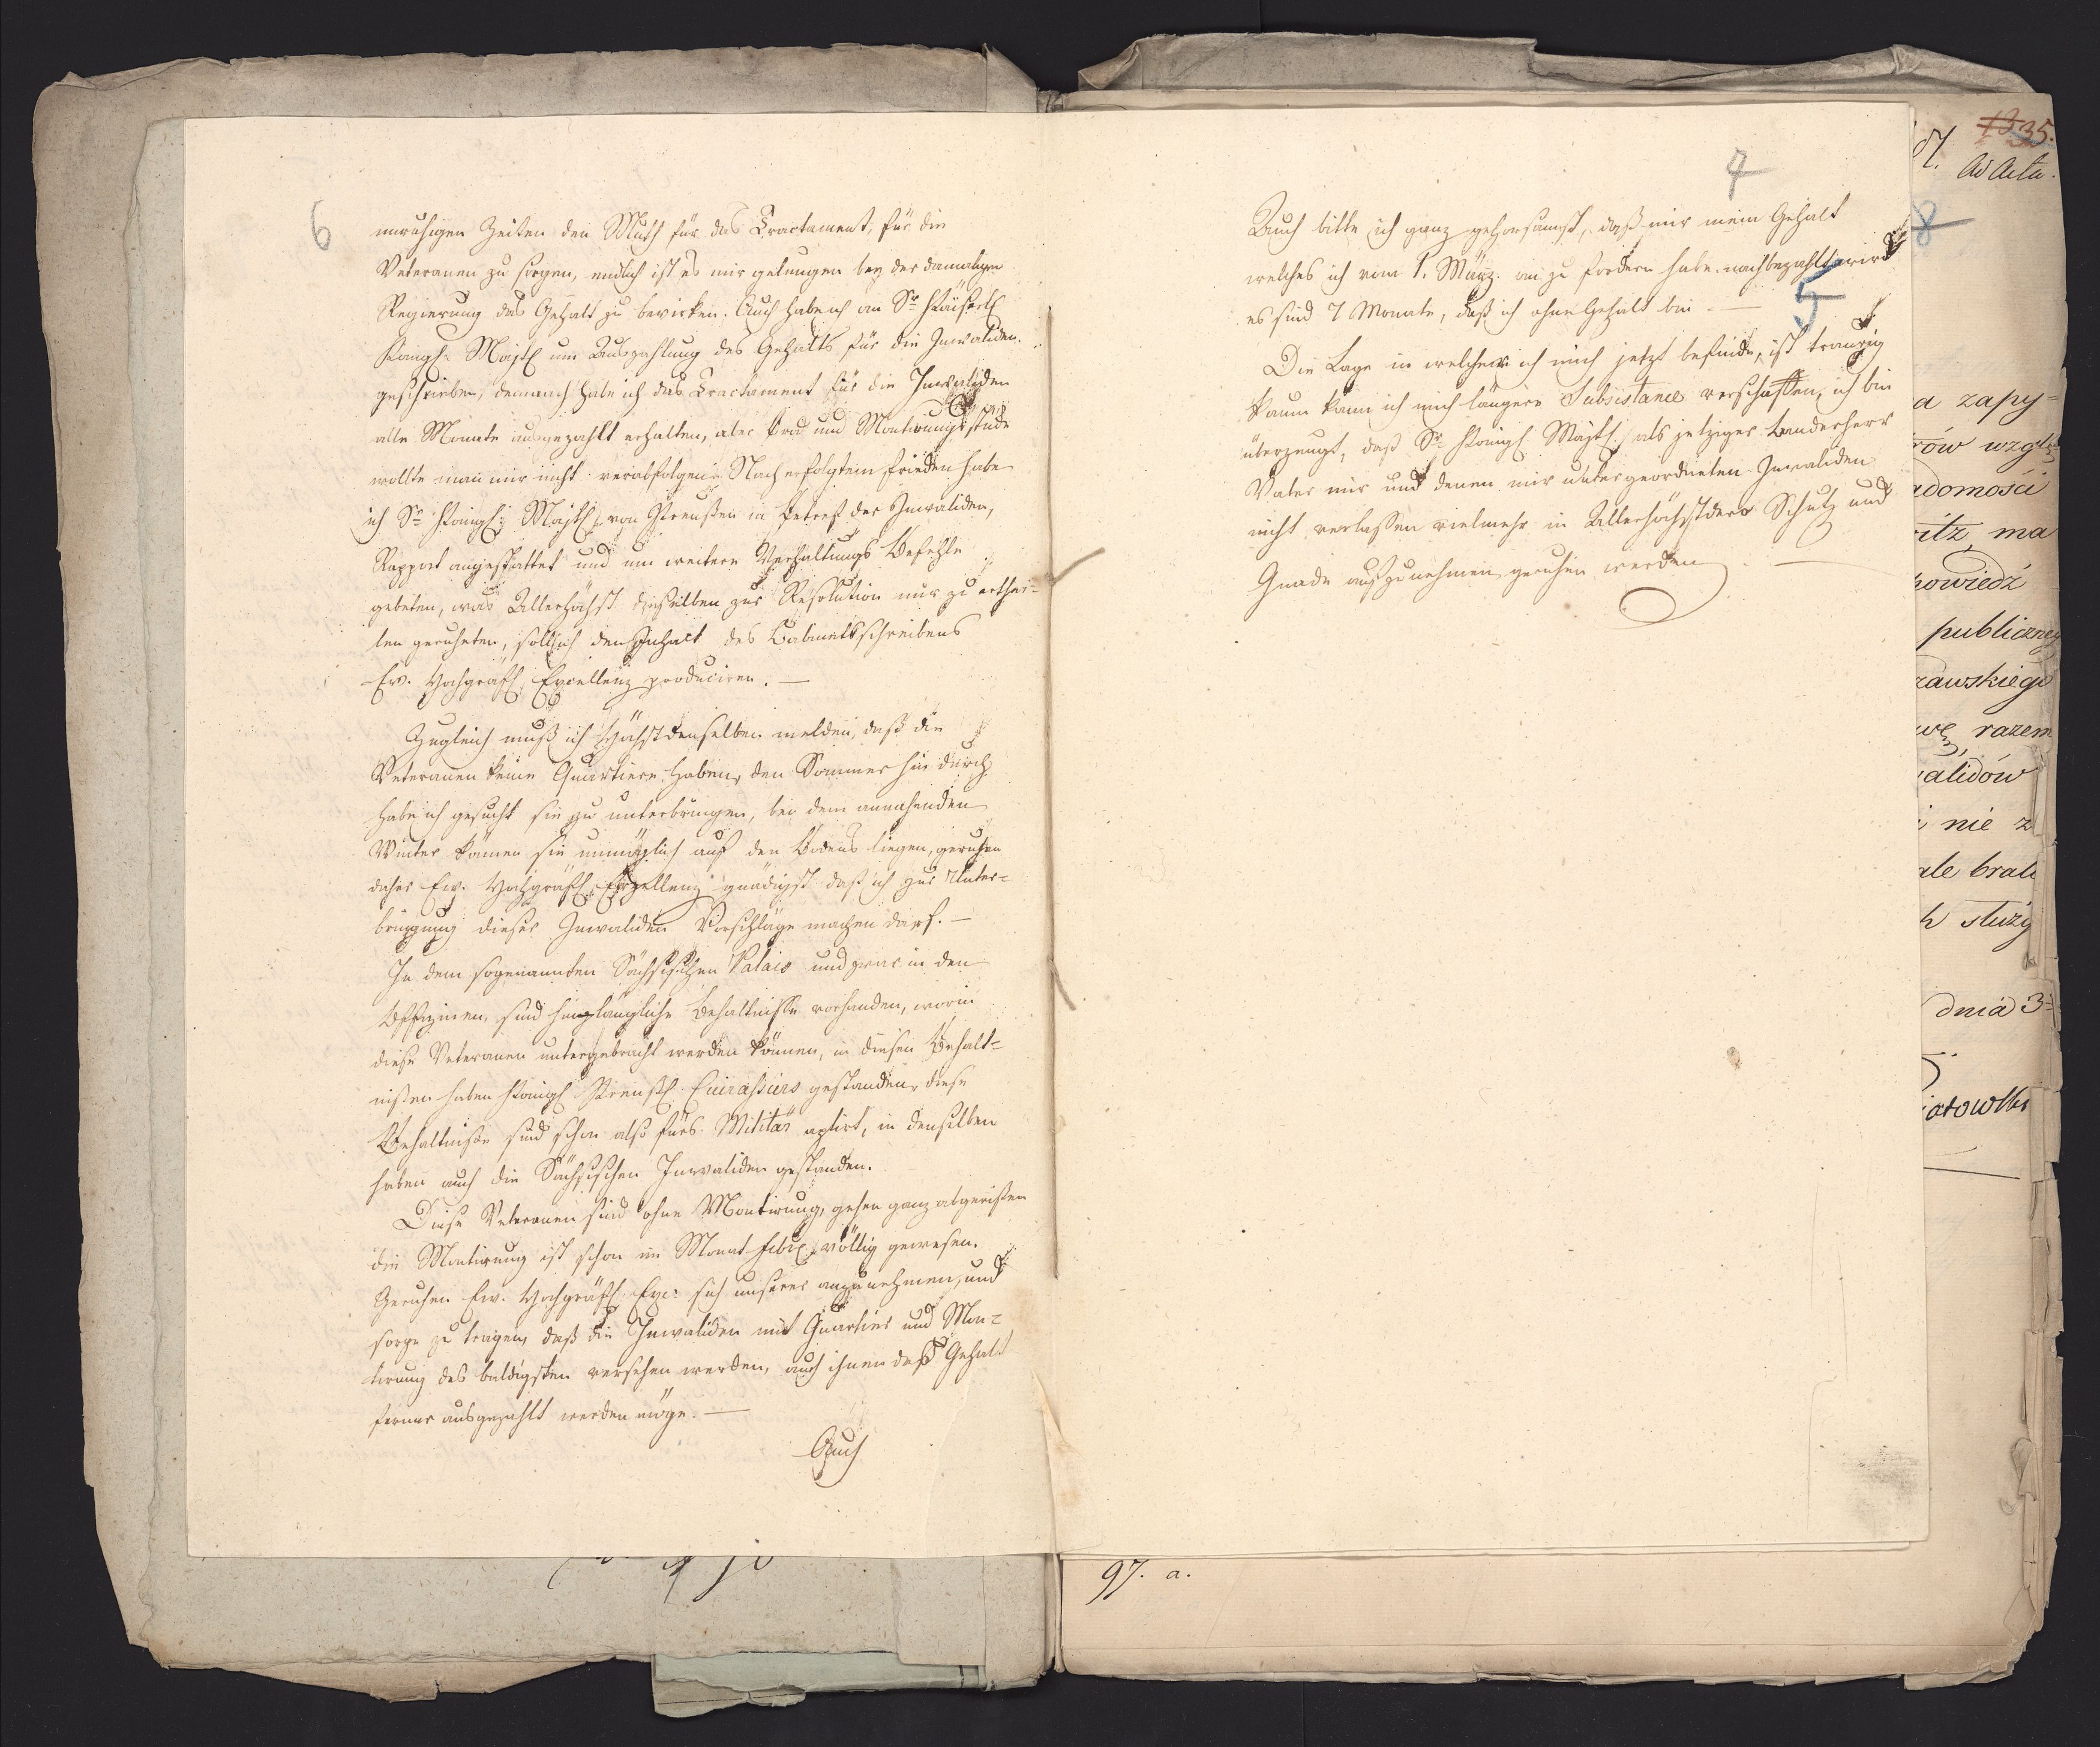 6
unruhigen Zeiten den Muth für das Tractament, für die
Veteranen zu sorgen, endlich ist es mir gelungen bey der damaligen
Regierung das Gehalt zu bewirken. Auch habe ich an Sr. Kaiserl.
Königl. Majst. um Auszahlung des Gehalts für die Invaliden
geschrieben, demnach habe ich das Tractament für die Invaliden
alle Monate ausgezahlt erhalten, aber Brod und Montirungsstücke
wollte man mir nicht verabfolgen. Nach erfolgtem Frieden habe
ich Sr. Königl. Majst. von Preußen in Betreff der Invaliden,
Rapport angestattet und um weitere Verhaltungs Befehle
gebeten, was Allerhöchst dieselben zur Resolution mir zu erthei-
len geruheten, soll ich den Inhalt des Cabinetsschreibens
Ew. Hochgräfl. Excellenz produciren. —
Zugleich muß ich Höchstdenselben melden, daß die
Veteranen keine Quartiere haben, den Sommer hin durch
habe ich gesucht sie zu unterbringen, bei dem annahenden
Winter können sie unmöglich auf den Bodens liegen, geruhen
daher Ew. Hochgräfl. Excellenz gnädigst daß ich zur Unter-
bringung dieser Invaliden Vorschläge machen darf. —
In dem sogenannten Sächsischen Palais und zwar in den
Offizinen, sind hinglängliche Behaltnisse vorhanden, worin
diese Veteranen untergebracht werden können, in diesen Behalt-
nissen haben Königl. Preußl. Cuirassiers gestanden, diese
Behaltnisse sind schon also fürs Militär aptirt, in denselben
haben auch die Sächsischen Invaliden gestanden.
Diese Veteranen sind ohne Montirung, gehen ganz abgerissen
die Montirung ist schon im Monat Febr. völlig gewesen.
Geruhen Ew. Hochgräfl. Exc. sich unserer anzunehmen, und
sorge zu tragen, daß die Invaliden mit Quartier und Mon-
tirung des baldigsten versehen werden, auch ihnen daß Gehalt
ferner ausgezahlt werden möge. —
Auch
7
Auch bitte ich ganz gehorsamst, daß mir mein Gehalt
welches ich vom 1. März an zu fordern habe nachbezahlt wird
es sind 7 Monate, daß ich ohne Gehalt bin. —
5
Die Lage in welcher ich mich jetzt befinde, ist traurig
kaum kann ich mich längere Subsistance verschaffen, ich bin
überzeugt, daß Sr. Königl. Majst. als jetziger Landesherr
Vater mir und denen mir untergeordneten Invaliden
nicht verlassen vielmehr in Allerhöchstdero Schutz und
Gnade aufzunehmen geruhen werden.
1335.
Ad Acta.
8
a zapy-
rów wzglę-
adomości
itz ma
powiedź
publiczney
zawskiego
wę razem
alidów
i nie z
ale brali
h służy
dnia 3
97. a.